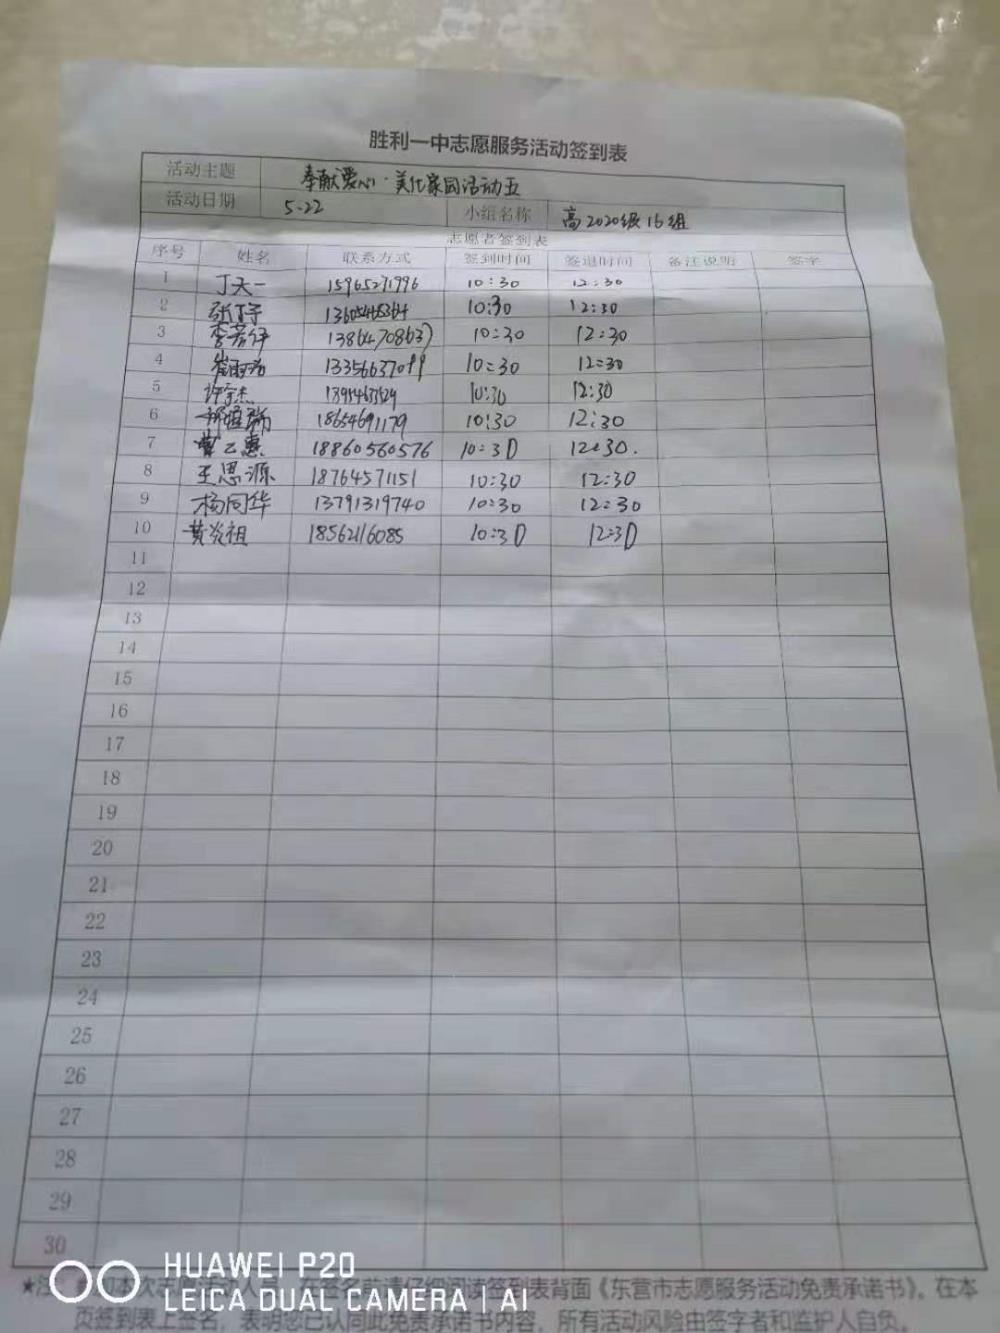 胜利一中志愿服务活动签到表
活动主题 奉献爱心·美化家园活动五
活动日期 5-22 小组名称 高2020级16组
志愿者签到表
序号 姓名 联系方式 签到时间 签退时间 备注说明 签字
1 丁天一 15965271996 10:30 12:30
2 10:30 12:30
3 10:30 12:30
4 崔雨涵 10:30 12:30
5 许宇杰 10:30 12:30
6 18654691179 10:30 12:30
7 18860560576 10:30 12:30.
8 王思源 18764571151 10:30 12:30
9 杨同华 13791319740 10:30 12:30
10 黄炎祖 18562116085 10:30 12:30
11
12
13
14
15
16
17
18
19
20
21
22
23
24
25
26
27
28
29
30
HUAWEI P20
LEICA DUAL CAMERA | AI
前请仔细阅读签到表背面《东营市志愿服务活动免责承诺书》。在本
页签到表上签名，表明您已认同此免责承诺书内容，所有活动风险由签字者和监护人自负。